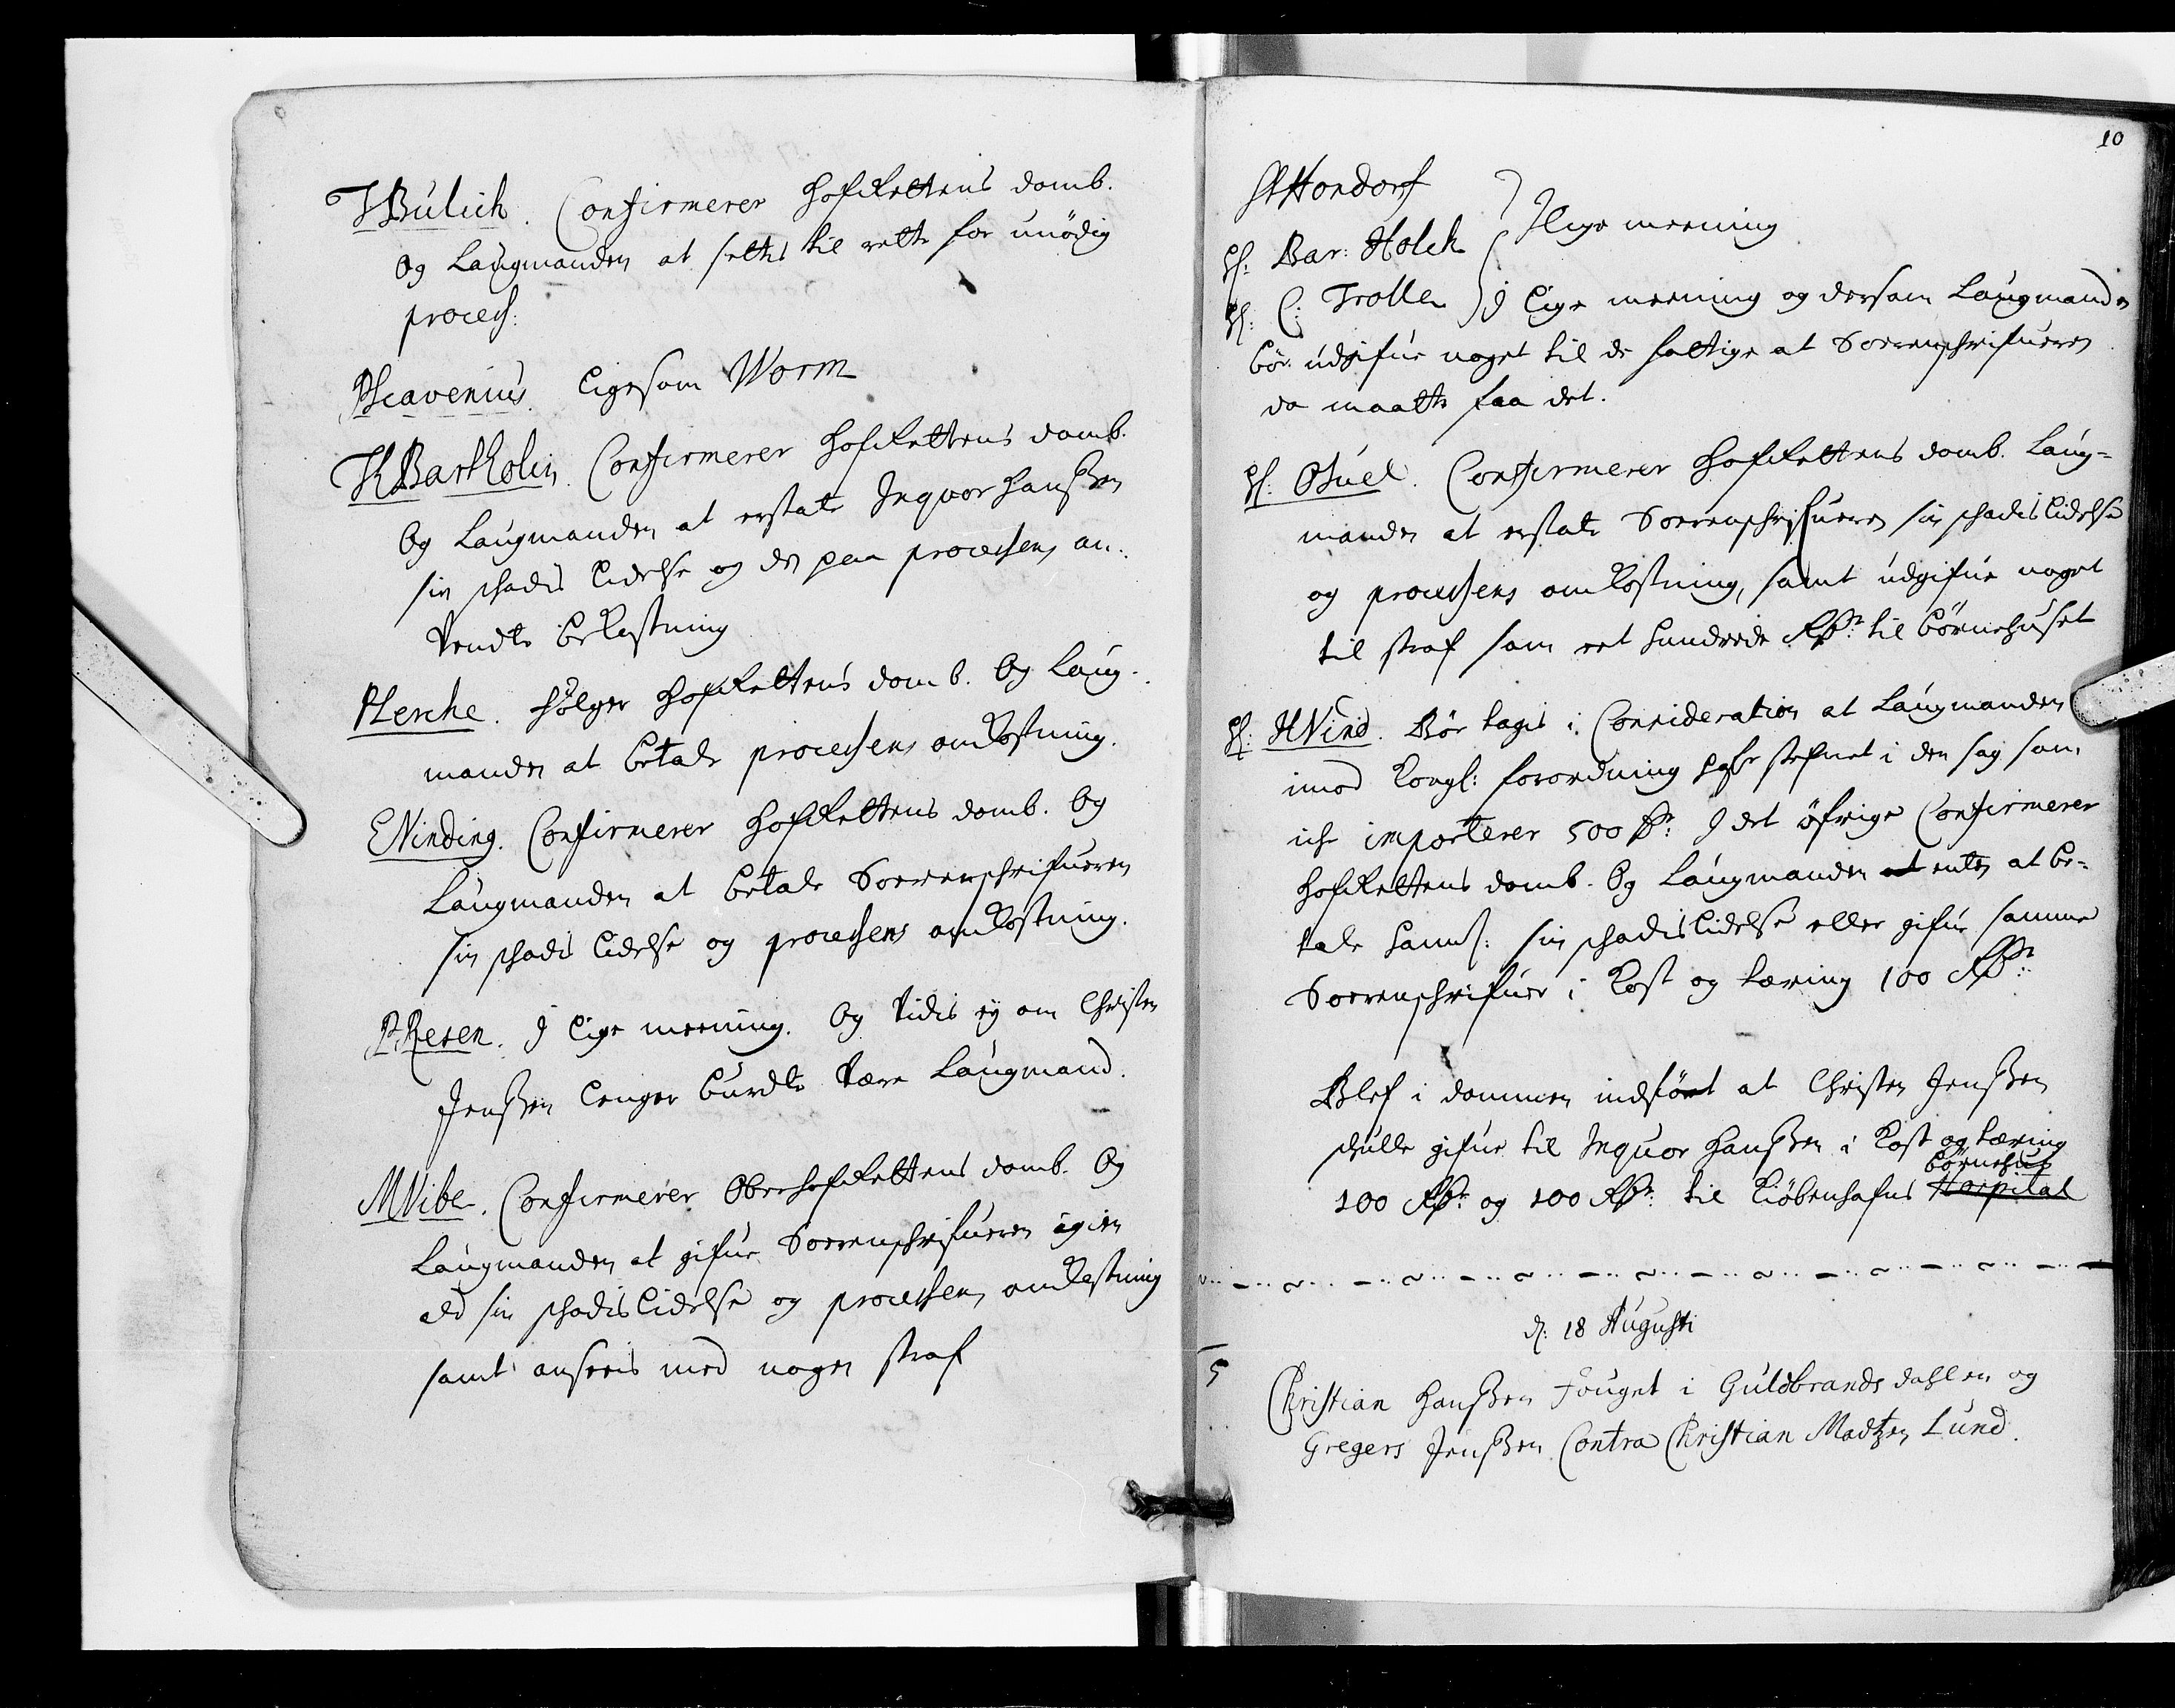 TBülich. Confirmerer hofRettens domb.
Og Laugmanden at settis til rette for unödig
process:
PScavenius. ligesom Worm
TKBartholin. Confirmerer hofRettens domb.
Og Laugmanden at erstate Ingvor Hanssen
sin schadis lidelse og den paa processen an¬
Vendte bekostning
PLerche. fölger hofRettens domb. Og Laug¬
manden at betale processens omkostning.
EVinding. Confirmerer hofRettens domb. Og
Laugmanden at betale Soerenschrifueren
sin schadis lidelse og processens omkostning.
PResen. J lige meening. Og Vidis ey om Christen
Jenssen lenger burdte Være Laugmand.
MVibe. Confirmerer OberhofRettens domb. Og
Laugmanden at gifue Soerenschrifueren igien
ald sin schadislidelse og processens omkostning
samt ansees med nogen straf
10
Hondorf
H: Bar: Holck } J lige meening
H: C: Trolle J lige meening og dersom Laugmanden
bör udgifue noget til de fattige at Sorenschrifueren
da maatte faa det.
H: OJuel. Confirmerer hofRettens domb. Laug¬
manden at erstate Sorenschrifueren sin schadislidelse
og processens omkostning, samt udgifue noget
til straf som eet hundrede Rdr: til börnehuset
H: HVind. Bör tagis i Consideration at Laugmanden
imod Kongl: forordning er stefnet i den sag som
iche importerer 500 dr: J det öfrige Confirmerer
hofRettens domb. Og Laugmanden enten at be¬
tale hannem: sin schadislidelse eller gifue samme
Sorenschrifuer i Kost og tæring 100 Rdr:
Blef i dommen indfört at Christen Jenssen
schulle gifue til Inguor Hanssen i Kost og tæring
börnehus
100 Rdr: og 100 Rdr: til Kiöbenhafns Hospital
d: 18 Augusti
5
Christian Hanssen Fouget i Guldbrandsdahlen og
Gregers Jenssen Contra Christian Madtzen Lund.